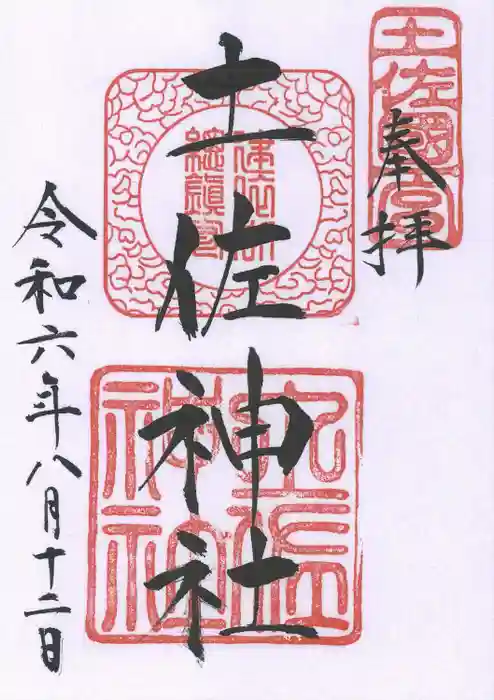 奉拝
土佐國一宮
土佐神社
土佐神社
令和六年八月十二日